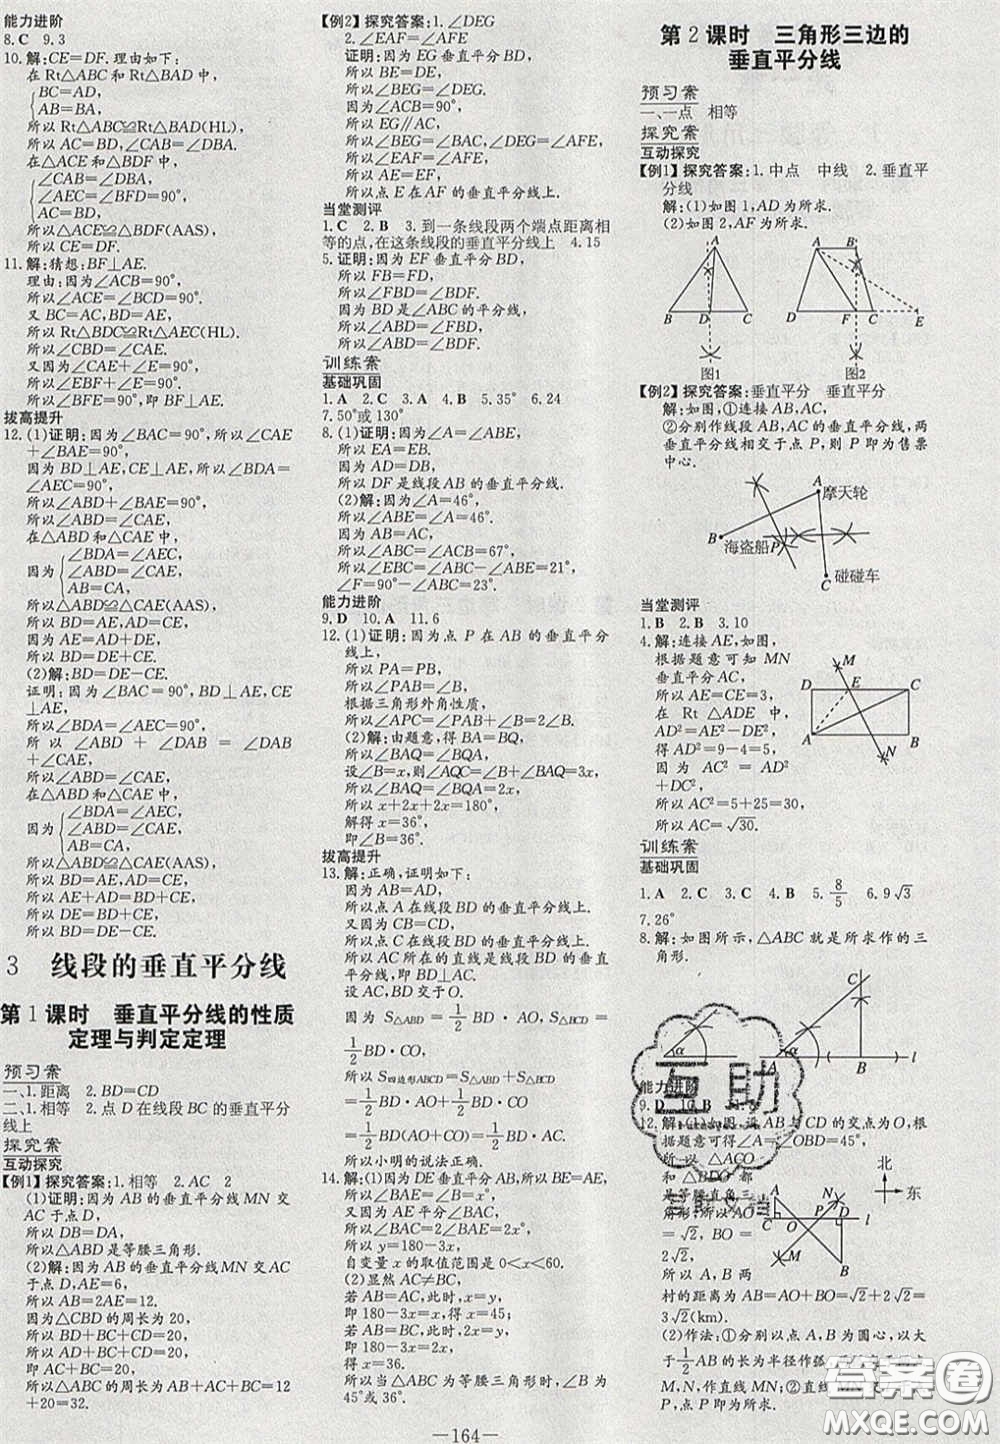 能力进阶
8.C 9.3
10.解:CE=DF.理由如下:
在Rt△ABC和Rt△BAD中,
BC=AD,
AB=BA,
所以Rt△ABC≌Rt△BAD(HL).
所以AC=BD,∠CAB=∠DBA.
在△ACE和△BDF中,
∠CAB=∠DBA,
∠AEC=∠BFD=90°,
AC=BD,
所以△ACE≌△BDF(AAS).
所以CE=DF.
11.解:猜想:BF⊥AE.
理由:因为∠ACB=90°,
所以∠ACE=∠BCD=90°.
又BC=AC,BD=AE,
所以Rt△BDC≌Rt△AEC(HL).
所以∠CBD=∠CAE.
又因为∠CAE+∠E=90°,
所以∠EBF+∠E=90°.
所以∠BFE=90°,即BF⊥AE.
拔高提升
12.(1)证明:因为∠BAC=90°,所以∠CAE
+∠BAE=90°.
因为BD⊥AE,CE⊥AE,所以∠BDA=
∠AEC=90°.
所以∠ABD+∠BAE=90°,
所以∠ABD=∠CAE.
在△ABD和△CAE中,
因为
∠BDA=∠AEC,
∠ABD=∠CAE,
AB=CA,
所以△ABD≌△CAE(AAS).
所以BD=AE,AD=CE.
因为AE=AD+DE,
所以BD=DE+CE.
(2)解:BD=DE-CE.
证明:因为∠BAC=90°,BD⊥AE,CE⊥
AE,
所以∠BDA=∠AEC=90°.
所以∠ABD+∠DAB=∠DAB
+∠CAE,
所以∠ABD=∠CAE.
在△ABD和△CAE中,
因为
∠BDA=∠AEC,
∠ABD=∠CAE,
AB=CA,
所以△ABD≌△CAE(AAS).
所以BD=AE,AD=CE.
所以AE+AD=BD+CE,
所以DE=BD+CE,
所以BD=DE-CE.
3 线段的垂直平分线
第1课时 垂直平分线的性质
定理与判定定理
预习案
一、1.距离 2.BD=CD
二、1.相等 2.点D在线段BC的垂直平分
线上
探究案
互动探究
【例1】探究答案:1.相等 2.AC 2
(1)证明:因为AB的垂直平分线MN交
AC于点D,
所以DB=DA,
所以△ABD是等腰三角形.
(2)解:因为AB的垂直平分线MN交AC
于点D,AE=6,
所以AB=2AE=12.
因为△CBD的周长为20,
所以BD+BC+CD=20,
所以AD+BC+CD=20,
即AC+BC=20,
所以△ABC的周长为AB+AC+BC=12
+20=32.
【例2】探究答案:1.∠DEG
2.∠EAF=∠AFE
证明:因为∠D=∠BED,
所以BE=DE,
所以∠BEG=∠DEG.
因为∠ACB=90°,
所以EG∥AC,
所以∠BEG=∠BAC,∠DEG=∠AFE,
所以∠EAF=∠AFE,
所以AE=EF,
所以点E在AF的垂直平分线上.
当堂测评
1.C 2.B 3.到一条线段两个端点距离相
等的点,在这条线段的垂直平分线上 4.15
5.证明:因为EF垂直平分BD,
所以FB=FD,
所以∠FBD=∠BDF.
因为BD是∠ABC的平分线,
所以∠ABD=∠FBD.
所以∠ABD=∠BDF.
训练案
基础巩固
1.A 2.C 3.A 4.B 5.35° 6.24
7.50°或130°
8.(1)证明:因为∠A=∠ABE,
所以EA=EB.
因为AD=DB,
所以DF是线段AB的垂直平分线.
(2)解:因为∠A=46°,
所以∠ABE=∠A=46°.
因为AB=AC,
所以∠ABC=∠ACB=67°,
所以∠EBC=∠ABC-∠ABE=21°,
∠F=90°-∠ABC=23°.
能力进阶
9.D 10.A 11.6
12.(1)证明:因为点P在AB的垂直平分
线上,
所以PA=PB,
所以∠PAB=∠B,
根据三角形外角性质,
所以∠APC=∠PAB+∠B=2∠B.
(2)解:由题意,得BA=BQ,
所以∠BAQ=∠BQA,
设∠B=x,则∠AQC=∠B+∠BAQ=3x,
所以∠BAQ=∠BQA=2x,
所以x+2x+2x=180°,
解得x=36°,
即∠B=36°.
拔高提升
13.解:正确,证明如下:
因为AB=AD,
所以点A在线段BD的垂直平分线上.
又因为CB=CD,
所以点C在线段BD的垂直平分线上.
所以AC所在的直线是线段BD的垂直
平分线,即BD⊥AC.
设AC,BD交于O.
因为S△ABD=1/2 BD·AO,S△BCD=1/2
BD·CO,
所以S四边形ABCD=S△ABD+S△BCD=
1/2 BD·AO+1/2 BD·CO
=1/2 BD(AO+CO)=1/2 BD·AC.
所以小明的说法正确.
14.解:(1)因为DE垂直平分AB,所以BE=AE.
所以∠BAE=∠ABC=x°.
又因为AE平分∠BAC,
所以∠BAC=2∠BAE=2x°.
所以y=180-3x,
自变量x的取值范围0<x<60.
(2)显然AC≠BC,
若AB=AC,此时,x=y,
即180-3x=x,得x=45;
若AB=BC,此时,2x=y,
即180-3x=2x,
得x=36.
所以当△ABC为等腰三角形时,∠B为
45°或36°.
第2课时 三角形三边的
垂直平分线
预习案
一、一点 相等
探究案
互动探究
【例1】探究答案:1.中点 中线 2.垂直平
分线
解:(1)如图1,AD为所求.
(2)如图2,AF为所求.
A A B
B D C D F C E
图1 图2
【例2】探究答案:垂直平分 垂直平分
解:如图,①连接AB,AC,
②分别作线段AB,AC的垂直平分线,两
垂直平分线相交于点P,则P即为售票
中心.
A 摩天轮
B 海盗船 P
C 碰碰车
当堂测评
1.B 2.B 3.10
4.解:连接AE,如图,
根据题意可知MN
垂直平分AC,
所以AE=CE=3,
在Rt△ADE中,
AD²=AE²-DE²,
得AD²=9-4=5,
因为AC²=AD²
+DC²,
所以AC²=5+25=30,
所以AC=√30.
M
D E C
A B
N
训练案
基础巩固
1.A 2.C 3.C 4.B 5.8/5 6.9√3
7.26°
8.解:如图所示,△ABC就是所求作的三
角形.
α
C
α
A B l
能力进阶
9.D 10.B
12.解:(1)如图,设AB与CD的交点为O,根
据题意可得∠A=∠OBD=45°,
所以△ACO
和△BDO都
是等腰直角三
角形.所以AO
=√2,BO=
2√2,
所以A,B两
村的距离为AB=AO+BO=√2+2√2=
3√2(km).
(2)作法:①分别以点A,B为圆心,以大
于1/2 AB的长为半径作弧,
M,N,作直线MN;②
北
东
A N
C O D l
M B
互助
答案圈
MXQE.COM
—164—